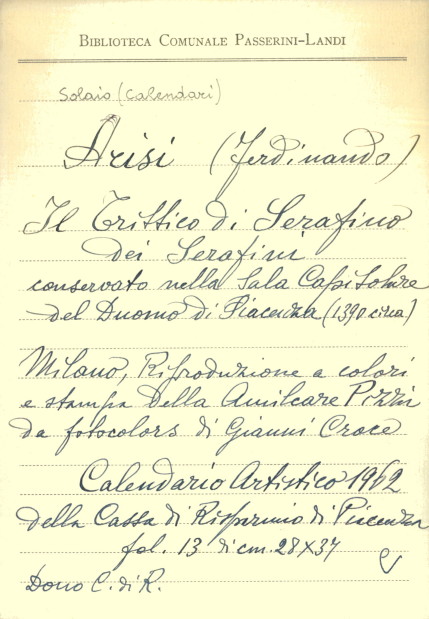 BIBLIOTECA COMUNALE PASSERINI-LANDI
Solaio (Calendari)
Arisi (Ferdinando)
Il Trittico di Serafino
dei Serafini
conservato nella Sala Capitolare
del Duomo di Piacenza (1390 circa)
Milano, Riproduzione a colori
e stampa della Amilcare Pizzi
da fotocolors di Gianni Croce
Calendario Artistico 1962
della Cassa di Risparmio di Piacenza
fol. 13 di cm. 28x37
Dono C. di R.